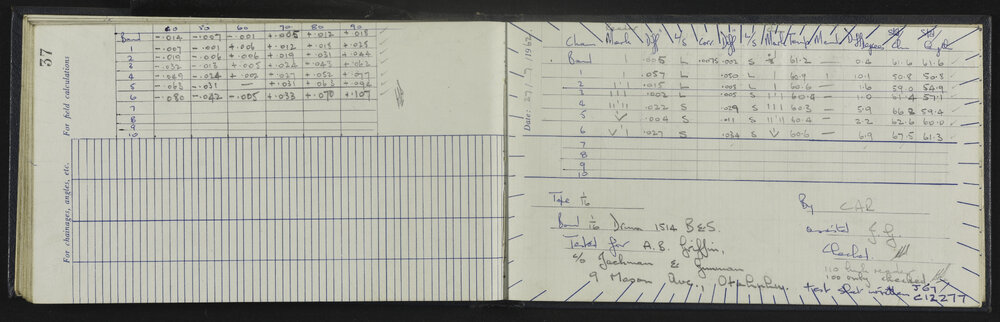 37
For field calculations
For chainages, angles, etc.
40 50 60 70 80 90
Band -.014 -.007 -.001 +.005 +.012 +.018
1 -.007 -.001 +.006 +.012 +.018 +.025
2 -.019 -.006 +.006 +.019 +.031 +.044
3 -.032 -.013 +.005 +.024 +.043 +.062
4 -.049 -.024 +.002 +.027 +.052 +.077
5 -.063 -.031 — +.031 +.063 +.094
6 -.080 -.042 -.005 +.033 +.070 +.107
7
8
9
10
Date: 27/7/1962
Chain Mark Diff L/S Corr. Diff L/S Mark Temp
Band 1 .005 L .0075 .002 S 61.2 — 0.4 61.6 61.6
1 1 .057 L .050 L 1 60.9 1 10.1 50.8 50.8
2 11 .015 L .005 L 11 60.6 - 1.6 59.0 54.9
3 111 .002 L .005 S 111 60.4 - 1.0 61.4 57.1
4 1111 .022 S .029 S 111 60.3 - 5.9 66.2 59.4
5 V .004 S .011 S 1111 60.4 - 2.2 62.6 60.0
6 V1 .027 S .034 S V 60.6 - 6.9 67.5 61.3
7
8
9
10
Tape 1/16
By CAR
Band 1/16 Drum 1514 B&S.
assisted J.G.
Tested for A.B. Griffin,
Checked
c/o Jackman &
110 high
100 only checked
9 Mason Ave., Otahuhu.
test sheet written JGY
C12277